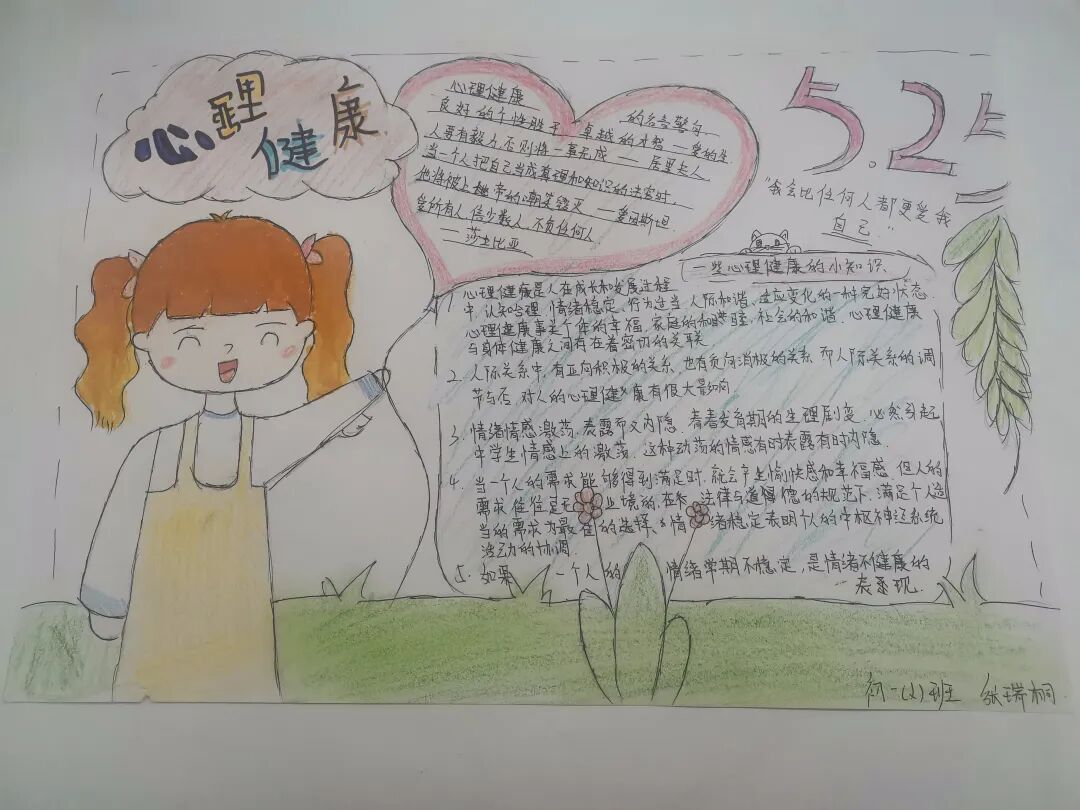 心理健康
心理健康 的名言警句
良好的个性胜于卓越的才智——爱的生
人要有毅力,否则将一事无成——居里夫人
当一个人把自己当成真理和知识的法官时,
他将被上帝的嘲笑毁灭——爱因斯坦
爱所有人,信少数人,不负任何人
——莎士比亚
5.25
"我会比任何人都更爱我
自己."
一些心理健康的小知识
1. 心理健康是人在成长和发展过程
中,认知合理,情绪稳定,行为适当,人际和谐,适应变化的一种完好状态.
心理健康事关个体的幸福,家庭的和睦,社会的和谐.心理健康
与身体健康之间存在着密切的关联
2. 人际关系中,有正向积极的关系,也有负向消极的关系,而人际关系的调
节与否,对人的心理健康有很大影响
3. 情绪情感激荡,表露而又内隐.青春发育期的生理剧变,必然引起
中学生情感上的激荡.这种动荡的情感有时表露有时内隐.
4. 当一个人的需求能够得到满足时,就会产生愉快感和幸福感.但人的
需求往往是无止境的,在 法律与道德的规范下,满足个人适
当的需求为最佳的选择.情绪稳定表明个人的中枢神经系统
活动的协调.
5. 如果一个人的情绪常期不稳定,是情绪不健康的
表现.
初一(2)班 张瑞桐